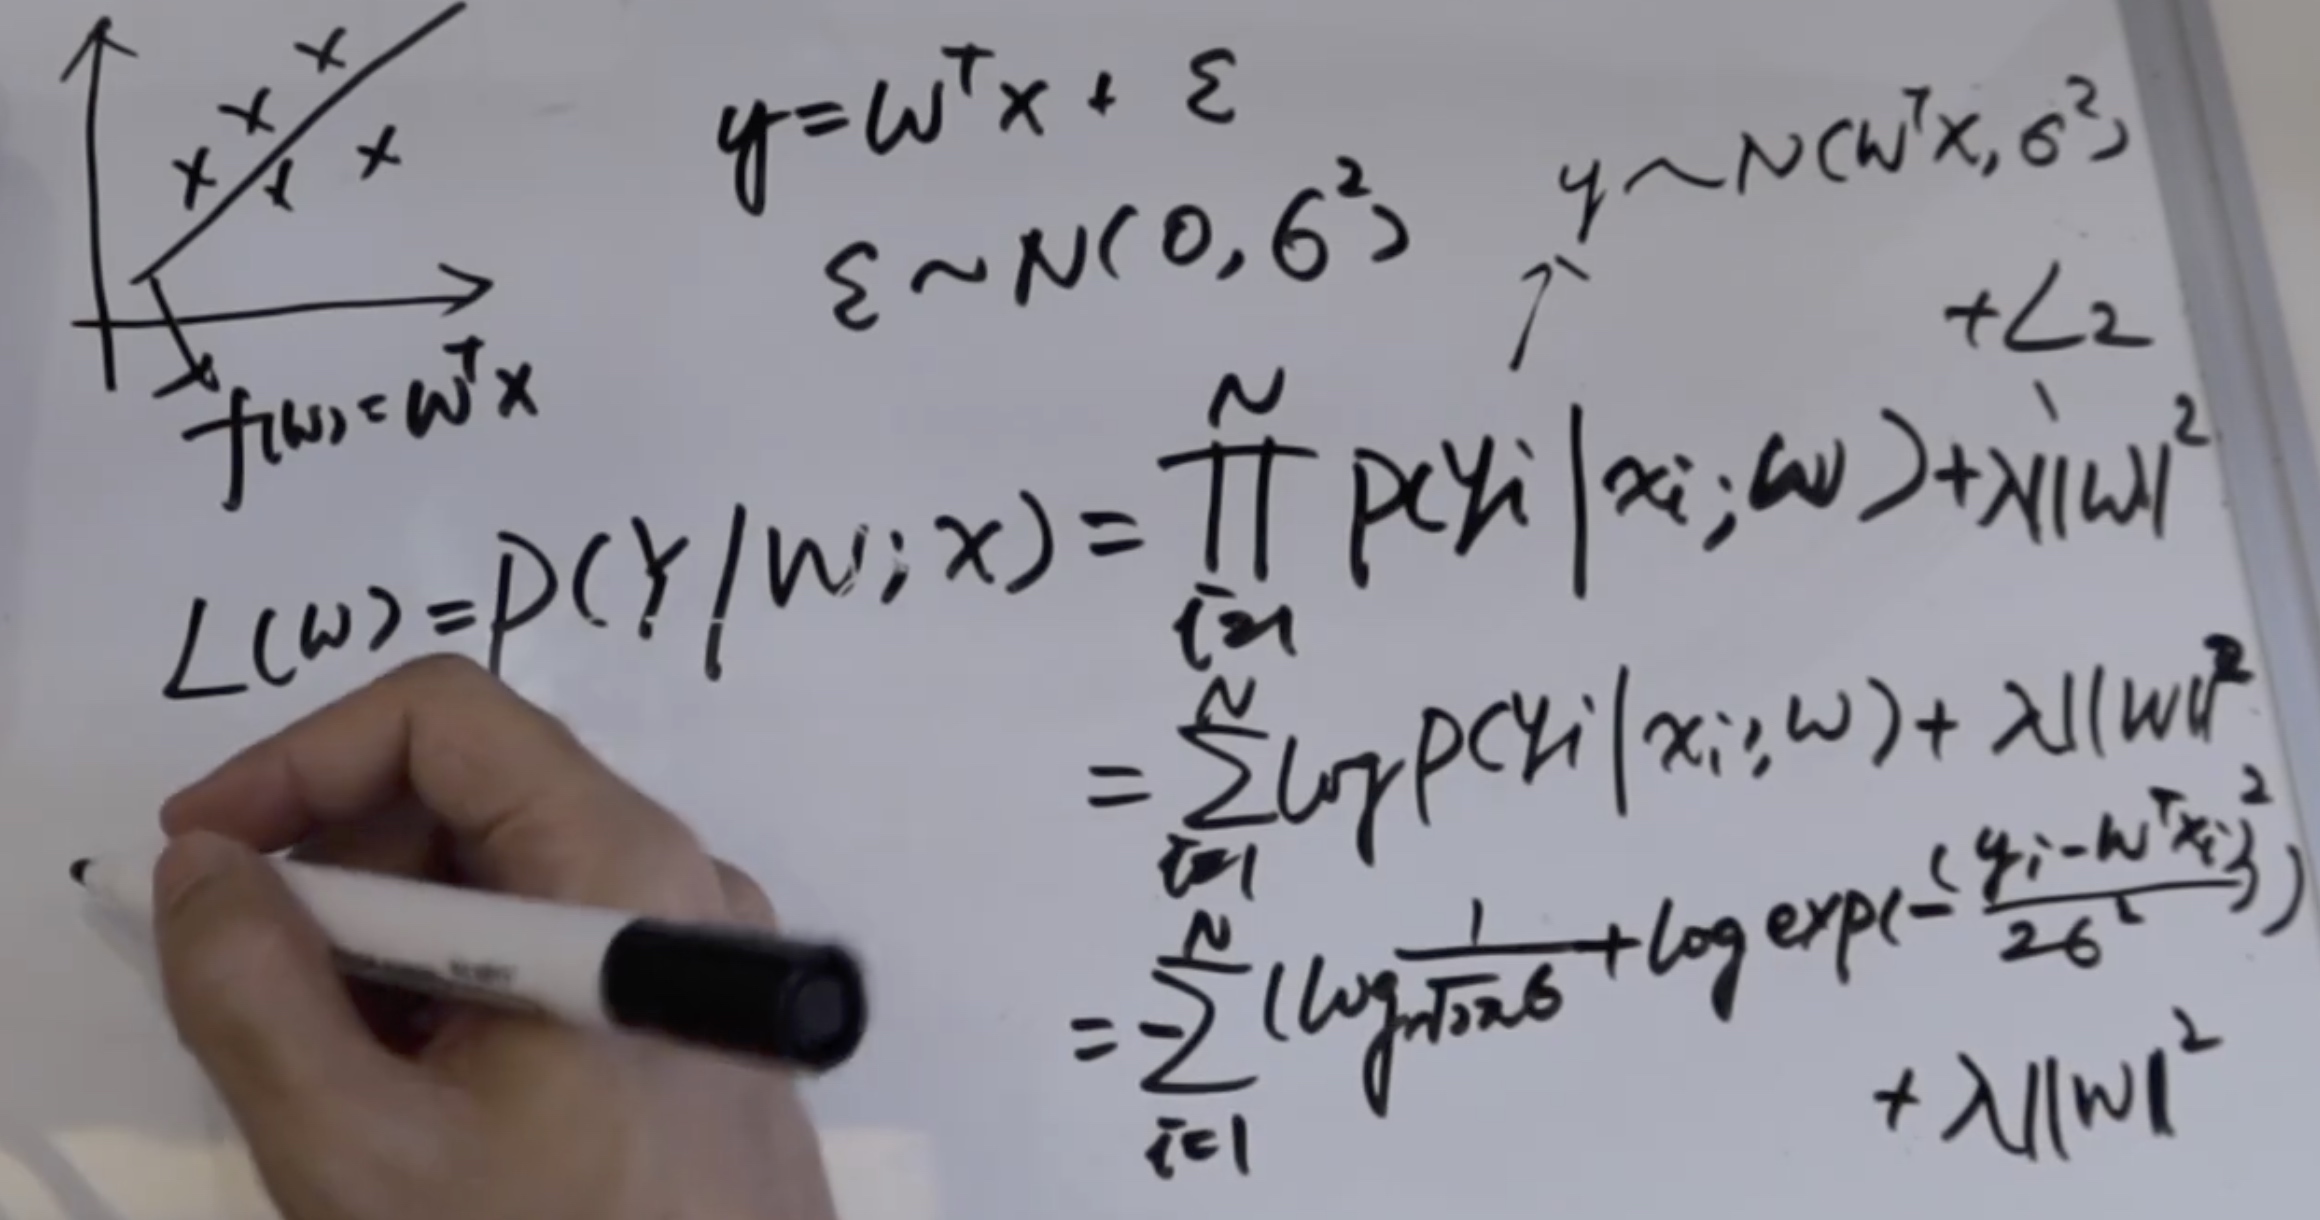 y = wᵀx + ε
ε ~ N(0, σ²)
y ~ N(wᵀx, σ²)
f(w) = wᵀx
+L2
L(w) = P(Y|W; x) = ∏_{i=1}^{N} p(yi|xi; w) + λ||w||²
= ∑_{i=1}^{N} log p(yi|xi; w) + λ||w||²
= ∑_{i=1}^{N} (log 1/(√2π σ) + log exp(-(yi - wᵀxi)²/2σ²))
+ λ||w||²